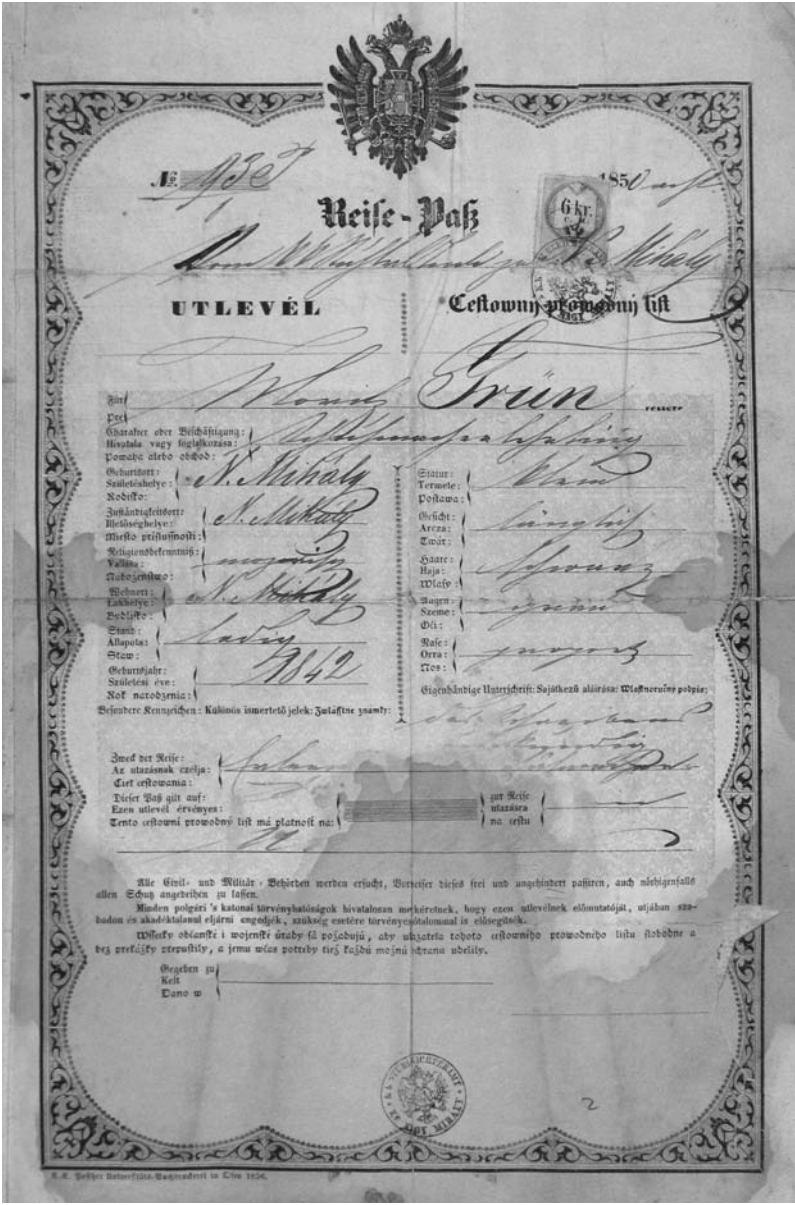 No. 193
185
6 kr.
Reise-Paß
Mihály
UTLEVÉL
Cestowný prowodný list
Für
Moriz Grün
részére
Pre
Charakter oder Beschäftigung:
Hivatala vagy foglalkozása:
Powaha alebo obchod:
Geburtsort:
Születéshelye: N. Mihály
Rodisko:
Zuständigkeitsort:
Illetőséghelye: N. Mihály
Miesto príslušnosti:
Religionsbekenntniß:
Vallása: mosaisch
Náboženstwo:
Wohnort:
Lakhelye: N. Mihály
Bydlisko:
Stand:
Állapota: ledig
Staw:
Geburtsjahr:
Születési éve: 1842
Rok narodzenia:
Besondere Kennzeichen: Különös ismertető jelek: Zwláštne znamky:
Statur:
Termete: klein
Postawa:
Gesicht:
Arcza: länglich
Twár:
Haare:
Haja: schwarz
Wlasy:
Augen:
Szeme: grau
Oči:
Nase:
Orra: proport
Nos:
Eigenhändige Unterschrift: Sajátkezű aláirása: Wlastnoručný podpis:
des Schreibens
Zweck der Reise:
Az utazásnak czélja:
Cieľ cestowania:
Dieser Paß gilt auf:
Ezen utlevél érvényes:
Tento cestowní prowodný list má platnosť na:
zur Reise
utazásra
na cestu
Alle Civil- und Militär-Behörden werden ersucht, Vorweiser dieses frei und ungehindert passiren, auch nöthigenfalls
allen Schutz angedeihen zu lassen.
Minden polgári 's katonai törvényhatóságok hivatalosan megkéretnek, hogy ezen utlevélnek előmutatóját, utjában sza-
badon és akadéktalanul eljárni engedjék, szükség esetére törvényes ótalommal is elősegitsék.
Wšecky občanské i wojenské úrady sú požadujú, aby ukazateľa tohoto cestowného prowodného listu slobodne a
bez prekážky prepustily, a jemu wčas potreby tiež každú možnú ochranu udelily.
Gegeben zu
Kelt
Dano w
K.K. STUHLRICHTERAMT
NAGY MIHÁLY
2
K. K. Pesther Universitäts-Buchdruckerei in Ofen 1856.